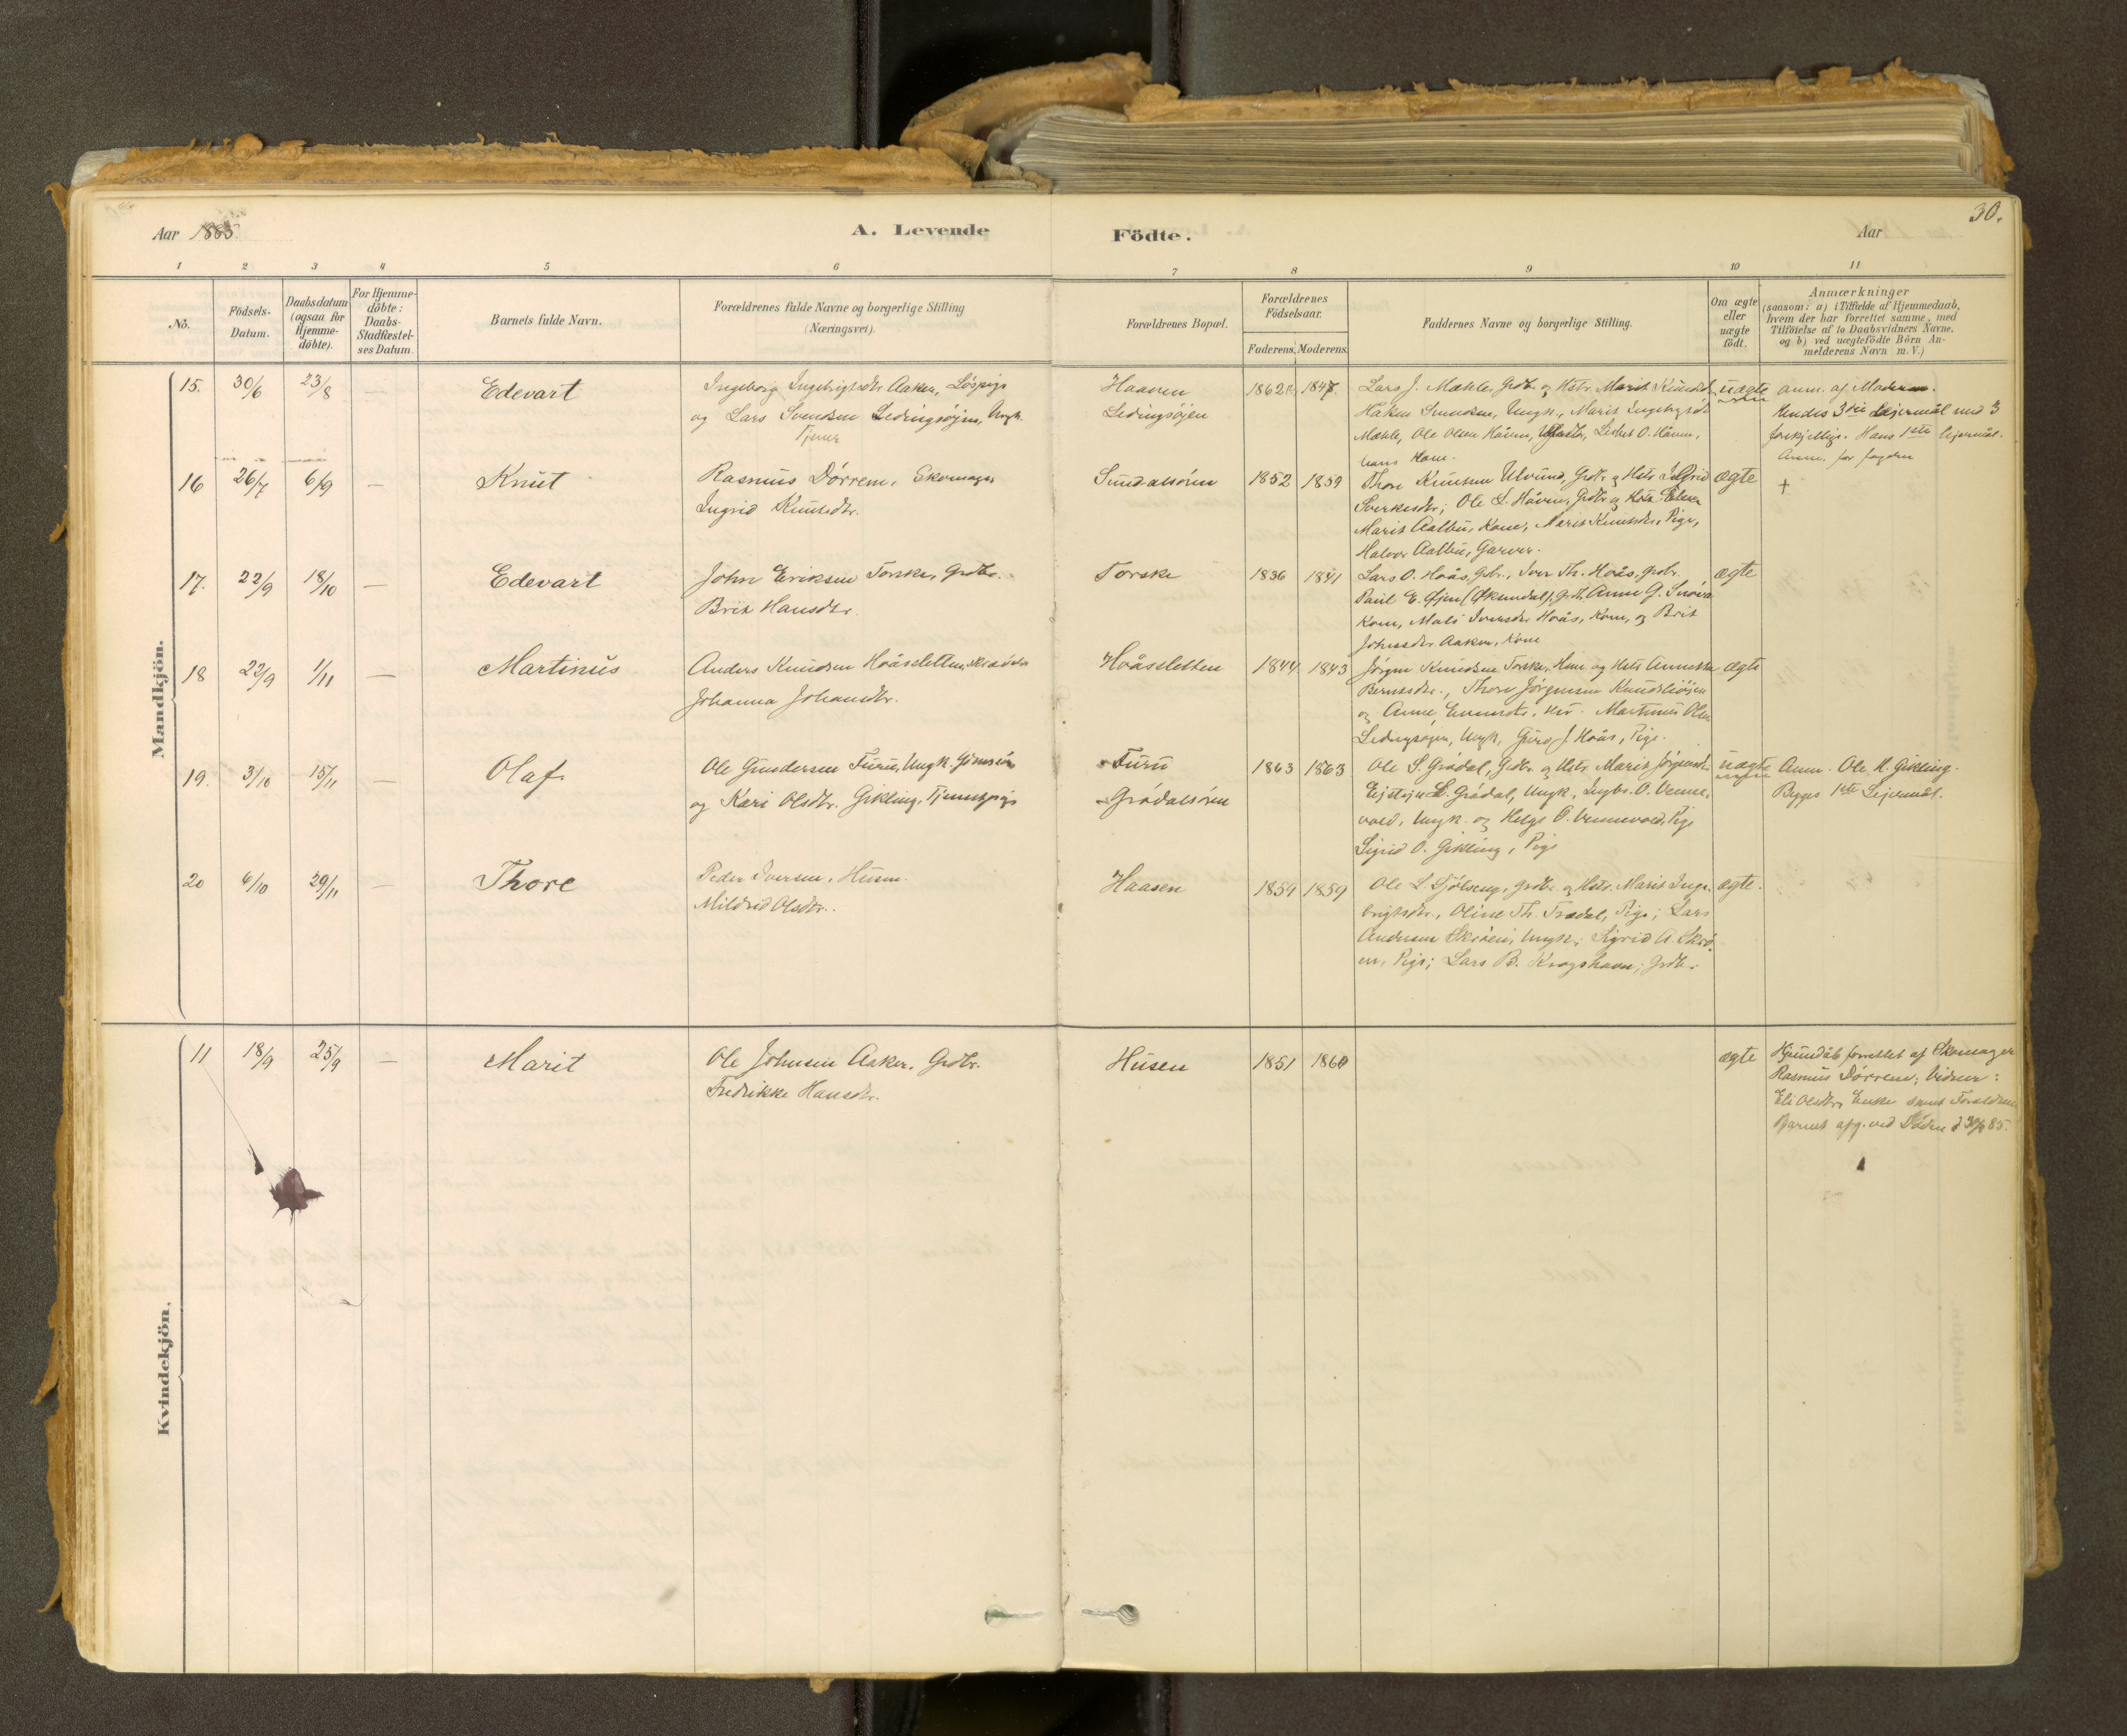 30.
Aar 1885.
A. Levende Födte.
Aar
1 2 3 4 5 6 7 8 9 10 11
Nō.
Födsels-
Datum.
Daabsdatum
(ogsaa for
Hjemme-
döbte).
For Hjemme-
döbte:
Daabs-
Stadfæstel-
ses Datum.
Barnets fulde Navn.
Forældrenes fulde Navne og borgerlige Stilling
(Næringsvei).
Forældrenes Bopæl.
Forældrenes
Födselsaar.
Faderens. Moderens.
Faddernes Navne og borgerlige Stilling.
Om ægte
eller
uægte
födt.
Anmærkninger
(saasom: a) i Tilfælde af Hjemmedaab,
hvem der har forrettet samme, med
Tilföielse af to Daabsvidners Navne,
og b) ved uægtefödte Börn An-
melderens Navn m. V.)
Mandkjön.
15. 30/6 23/8 — Edevart
Ingeborg Ingebrigtsdtr. Aaker, Löspige
og Lars Svendsen Ledingsöjen, Ungk.
Tjener
Haaven
Ledingsöjen
1862 1847.
Lars J. Mæhle, Grdb. og Hstr. Marit Knudsd.
Haken Svendsen, Ungk., Marit Ingebrigtsdt
Mæhle, Ole Olsen Håven, Lisbet O. Håven,
hans Kone.
uægte
anm. af Moderen.
Hendes 3die Lejermål med 3
forskjellige. Hans 1ste lejermål.
Anm. for fogden
16 26/7 6/9 — Knut
Rasmus Dörrem, Skomager
Ingrid Knutsdtr.
Sundalsören
1852 1859
Thore Knutsen Ulvund, Grdb. og Hstr. Ingrid
Sverkesdtr; Ole L. Håven, Grdbr og Hstr. Elen
Marit Aalbu, Kone, Marit Knutsdtr, Pige,
Halvor Aalbu, Garver.
ægte
+
17. 22/9 18/10 — Edevart
John Eriksen Torske, Grdbr.
Brit Hansdtr.
Torske
1836 1841
Lars O. Hoås, Gbr., Iver Th. Hoås, Grdbr.
Paul E. Øjen (Øksendal), Grdb. Anne G. Snøva
Kone, Mali Iversdtr Hoås, Kone, og Brit
Johnsdtr Aaker, Kone
ægte
18 22/9 1/11 — Martinus
Anders Knudsen Hoåssletten, Skrædder
Johanna Johansdtr.
Hoåssletten
1844. 1843
Jörgen Knudsen Torske, Hsm og Hstr Anne
Berntsdtr., Thore Jörgensen
og Anne Martinus Olsen
Ledingsøjen, Ungk, Guro J. Hoås, Pige.
ægte
19. 3/10 15/11 — Olaf
Ole Gundersen Furu, Ungk.
og Kari Olsdtr. Gikling, Tjenestpige
Furu
Grödalsören
1863 1863
Ole S. Grödal, Grdbr. og Hstr. Marit Jörgensdtr
Ejstejn L. Grödal, Ungk, Ingbr. O. Venne-
vold, Ungk. og Helge O. Vennevold, Pige
Sigrid O. Gikling, Pige
uægte
Anm. Ole K. Gikling.
Begges 1ste Lejermål.
20 6/10 29/11 — Thore
Peder Iversen, Husm.
Mildrid Olsdtr.
Haasen
1859 1859
Ole L. Fjölseng, Grdbr. og Hstr. Marit Inge-
brigtsdtr., Oline Th. Trædal, Pige; Lars
Andersen Skrøen, Ungk; Sigrid A. Skrø-
en, Pige; Lars B. Krogshavn; Grdb.
ægte.
Kvindekjön.
11 18/9 25/9 — Marit
Ole Johnsen Aaker, Grdbr.
Fredrikke Hansdtr.
Husen
1851 1860
ægte
Hjemdåb forrettet af Skomager
Rasmus Dörrem; Vidner:
Eli Olsdtr, Enke samt Forældrene
Barnet afg. ved Döden d 30/9 85.